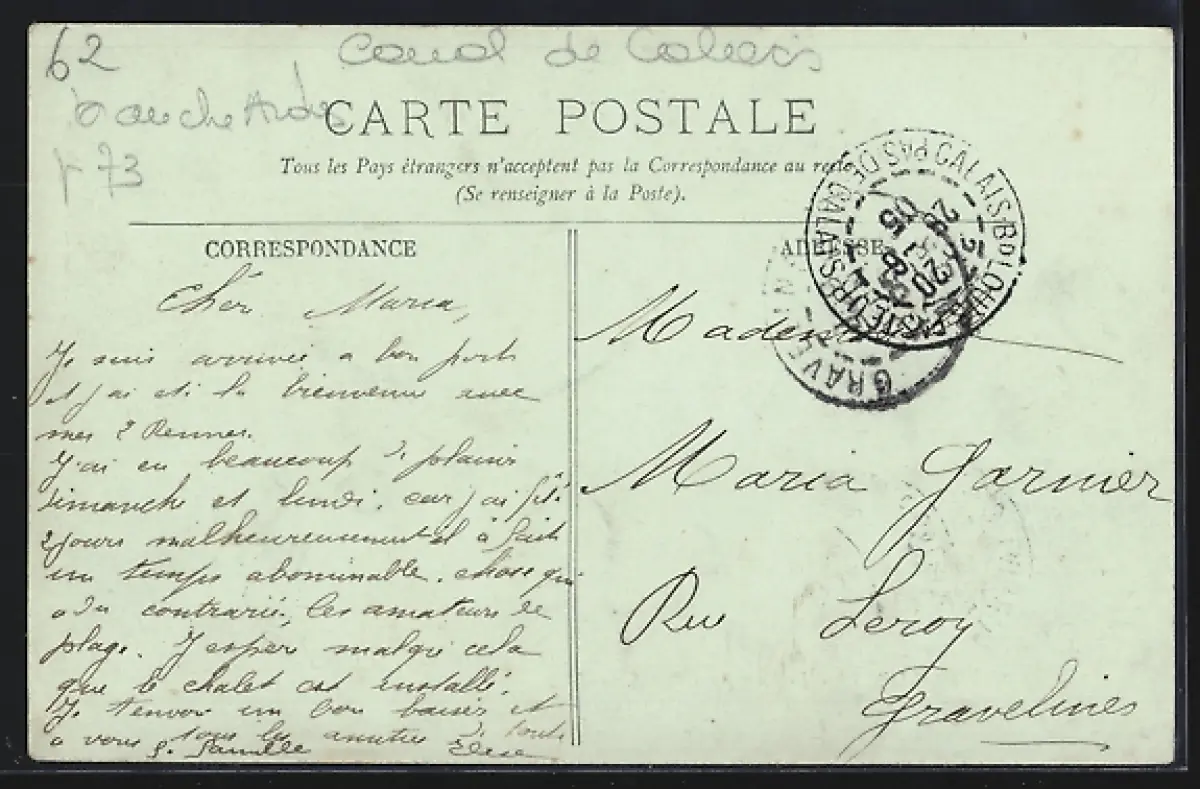 62
Canal de Calais
CARTE POSTALE
73
Tous les Pays étrangers n'acceptent pas la Correspondance au recto
(Se renseigner à la Poste).
CORRESPONDANCE
ADRESSE
PAS DE CALAIS
GRAVE
Chère Maria,
Je suis arrivée a bon port
et j'ai été la bienvenue avec
mes 2 Rennes.
J'ai eu beaucoup d plaisir
dimanche et lundi, car j'ai fêté
2 jours malheureusement il a fait
un temps abominable, chose qui
a du contrarié, les amateurs de
plage. J'espère malgré cela
que le chalet est installé.
Je t'envoie un bon baiser et
a vous tous les amitiés d toute
famille Elise
Mademoiselle
Maria Garnier
Rue Leroy
Gravelines